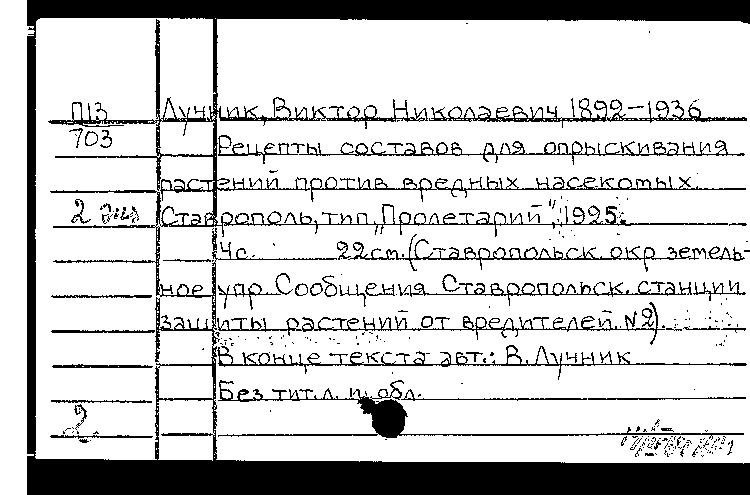 П13
703
Лучник, Виктор Николаевич, 1892-1936
Рецепты составов для опрыскивания
растений против вредных насекомых.
2 экз
Ставрополь, тип. "Пролетарий", 1925.
4с. 22см. (Ставропольск. окр земель-
ное упр. Сообщения Ставропольск. станции
защиты растений от вредителей. №2).
В конце текста авт.: В. Лучник
Без тит. л. и обл.
2.